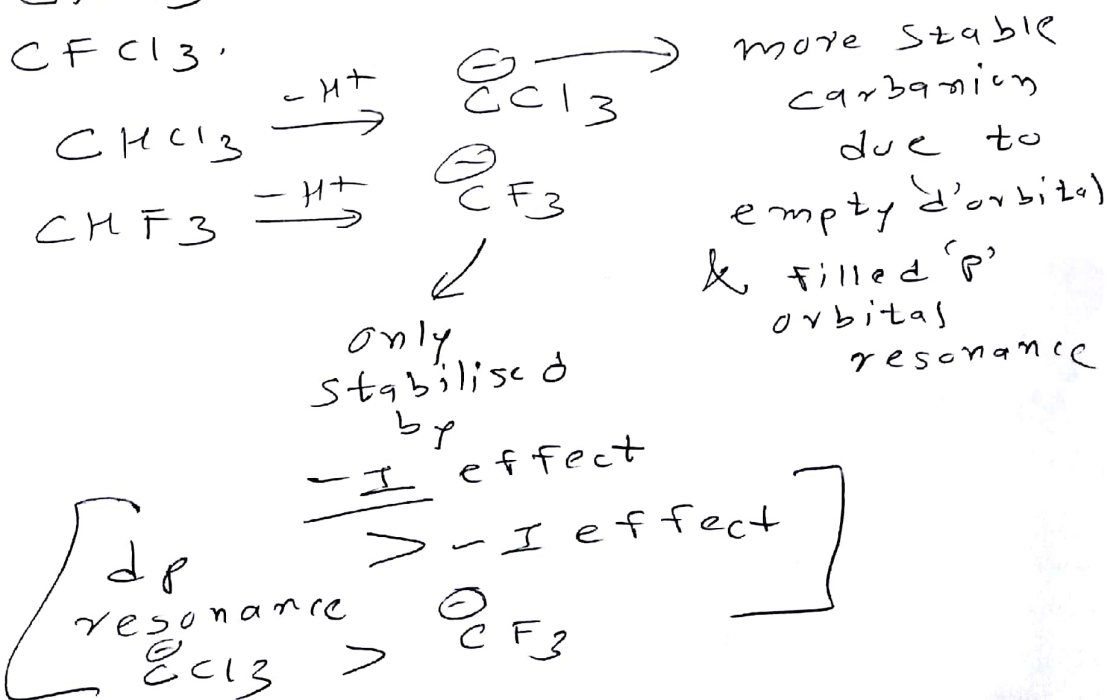 CFCl3.
CHCl3 -H+ → ⊖CCl3 → more stable
carbanion
due to
empty 'd' orbital
& filled 'p'
orbital
resonance
CHF3 -H+ → ⊖CF3
↙
only
stabilised
by
-I effect
[dp
resonance > -I effect]
⊖CCl3 > ⊖CF3